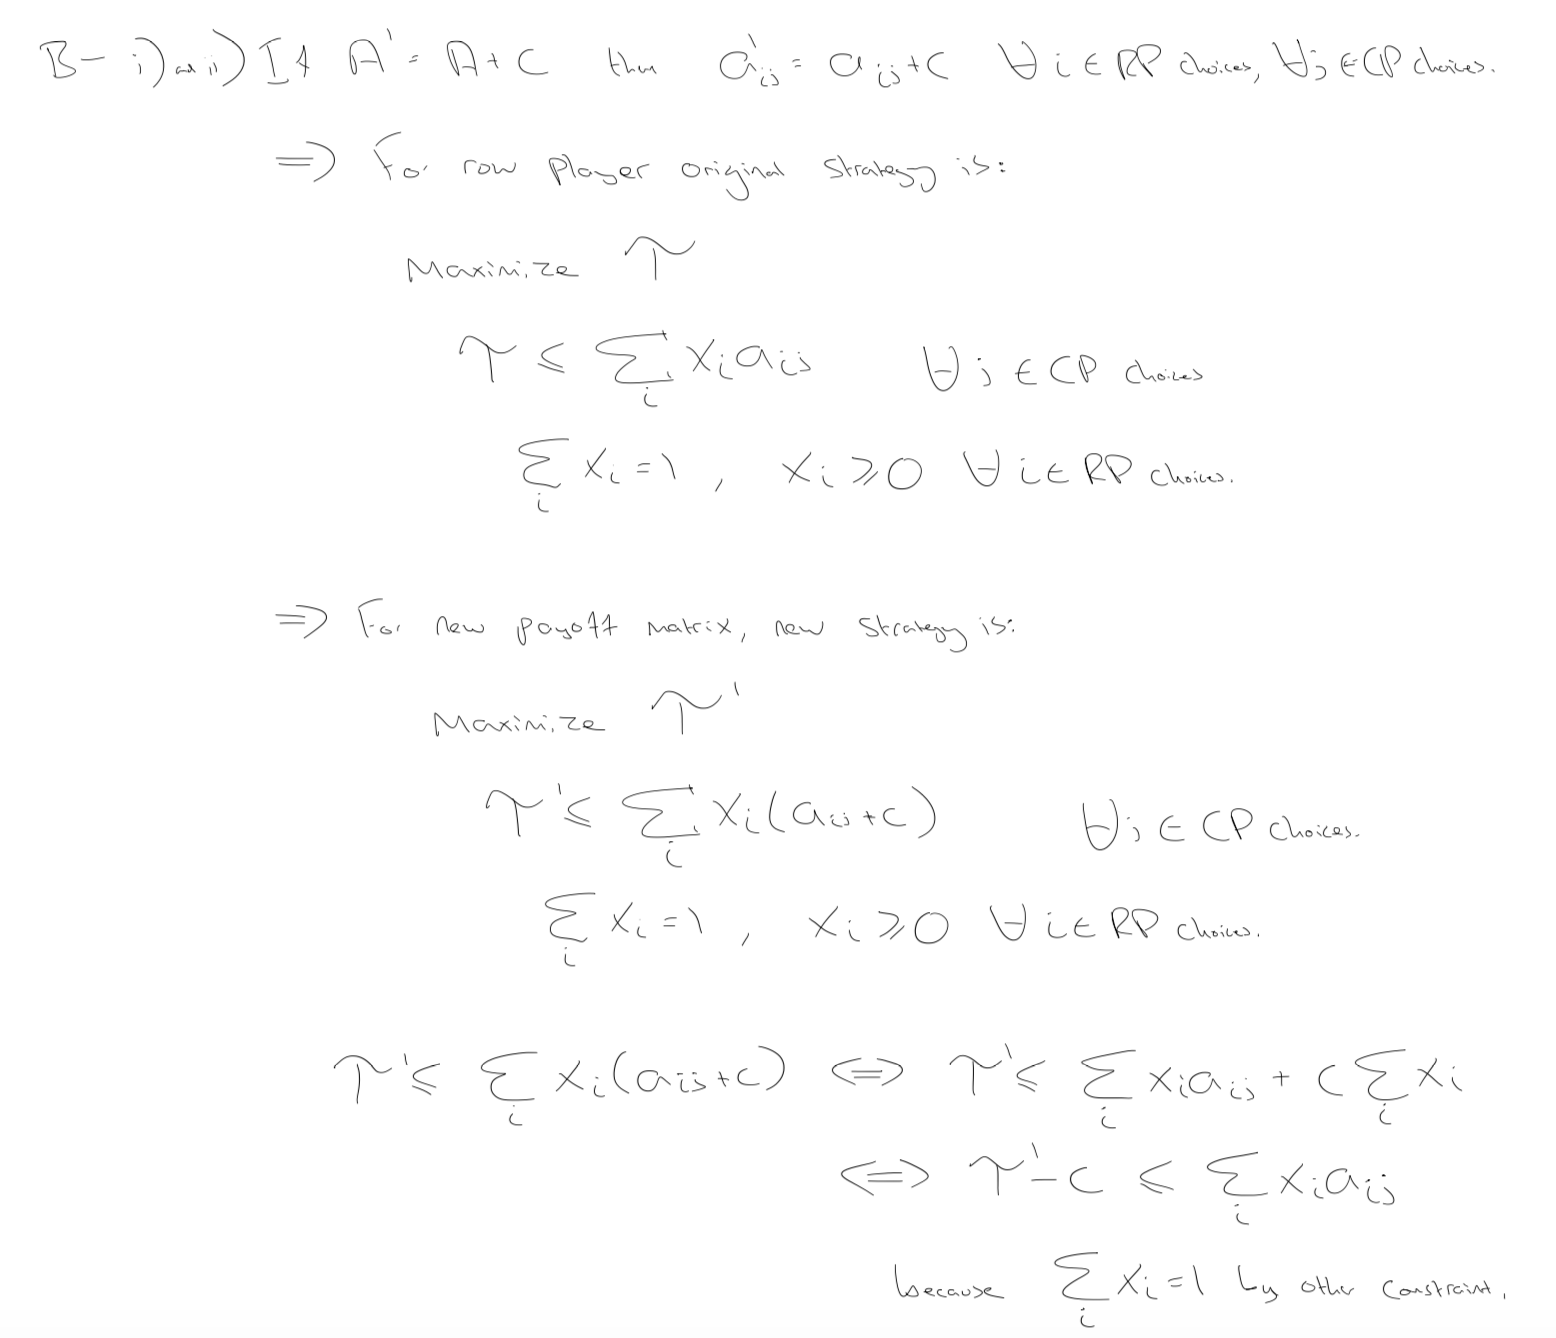 B- i) and ii) If A' = A + C then a'ij = aij + c ∀ i ∈ RP choices, ∀j ∈ CP choices.
⇒ For row player original strategy is:
Maximize τ
τ ≤ Σi xi aij ∀ j ∈ CP choices
Σi xi = 1, xi ≥ 0 ∀ i ∈ RP choices.
⇒ For new payoff matrix, new strategy is:
Maximize τ'
τ' ≤ Σi xi(aij + c) ∀j ∈ CP choices.
Σi xi = 1, xi ≥ 0 ∀ i ∈ RP choices.
τ' ≤ Σi xi(aij + c) ⇔ τ' ≤ Σi xi aij + c Σi xi
⇔ τ' - c ≤ Σi xi aij
because Σi xi = 1 by other constraint.